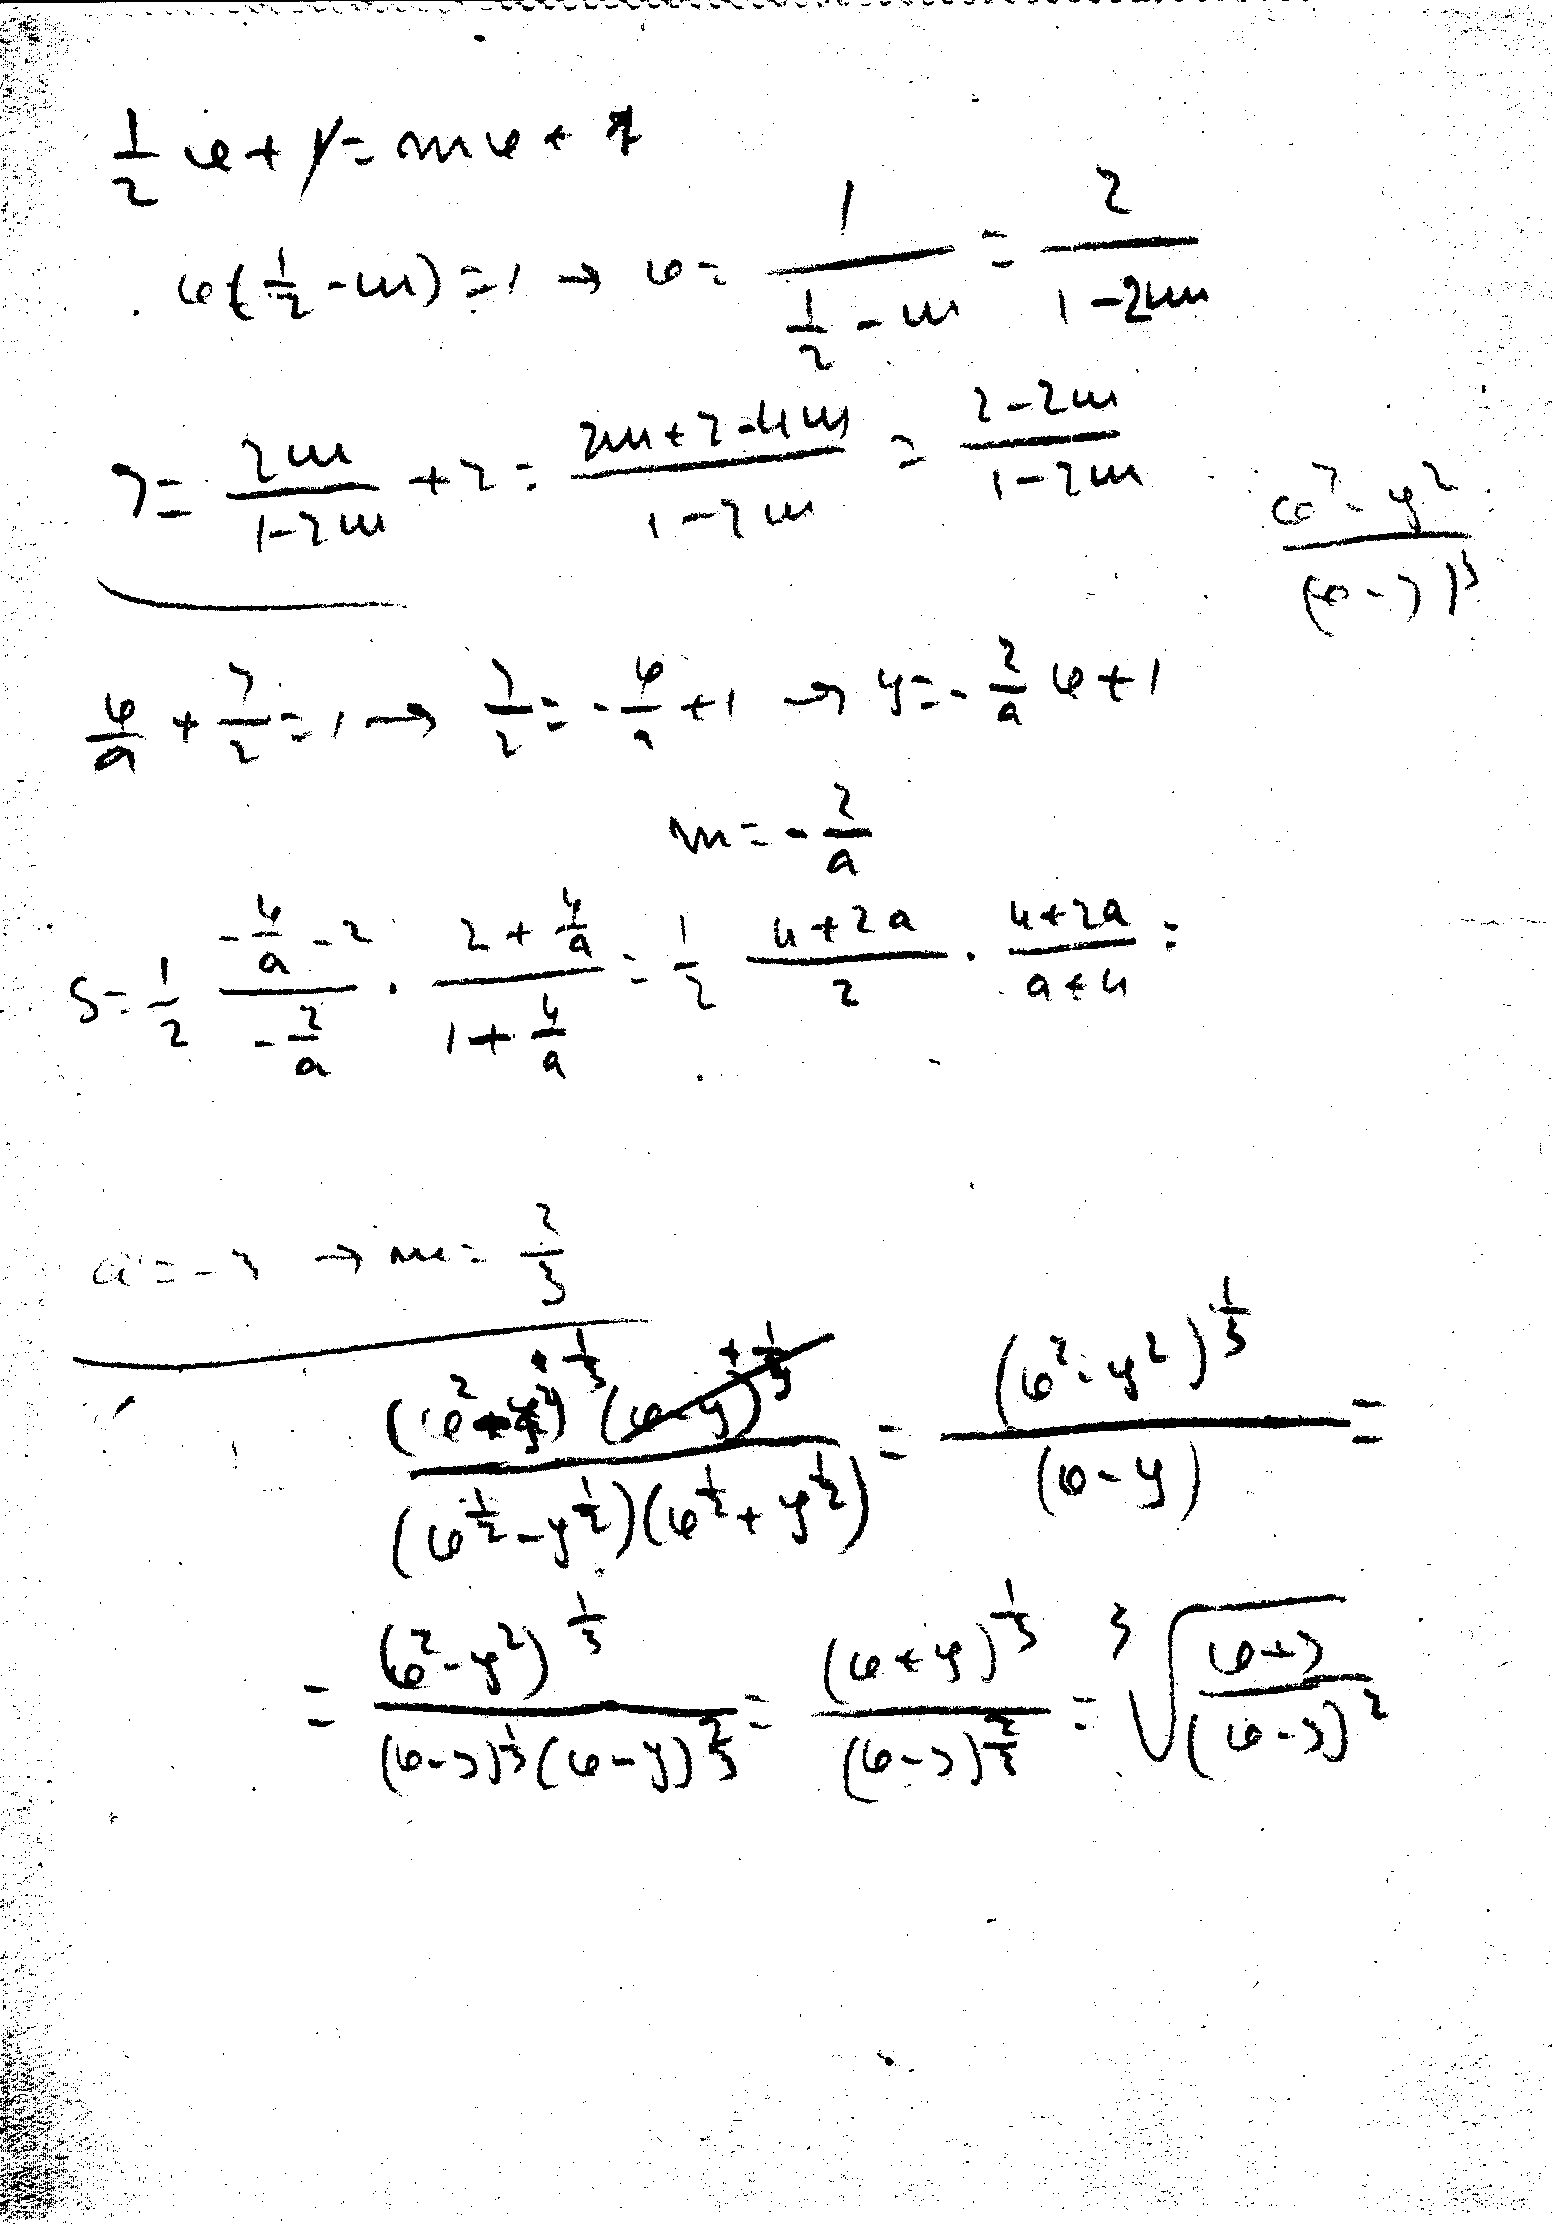 1/2 x + y = mx + 2
x(1/2 - m) = 1 → x = 1/(1/2 - m) = 2/(1-2m)
y = 2m/(1-2m) + 2 = (2m+2-4m)/(1-2m) = (2-2m)/(1-2m)
(x² - y²)/(x-y)³
x/a + y/2 = 1 → y/2 = -x/a + 1 → y = -2/a x + 1
m = -2/a
S = 1/2 (-4/a - 2)/(-2/a) · (2 + 4/a)/(1 + 4/a) = 1/2 (4+2a)/2 · (4+2a)/(a+4) =
a = -3 → m = 2/3
(x²-y²)^(1/3) / ((x^(1/2) - y^(1/2))(x^(1/2) + y^(1/2))) = (x²-y²)^(1/3) / (x-y) =
= (x²-y²)^(1/3) / ((x-y)^(1/3) (x-y)^(2/3)) = (x+y)^(1/3) / (x-y)^(2/3) = ³√((x+y)/(x-y)²)